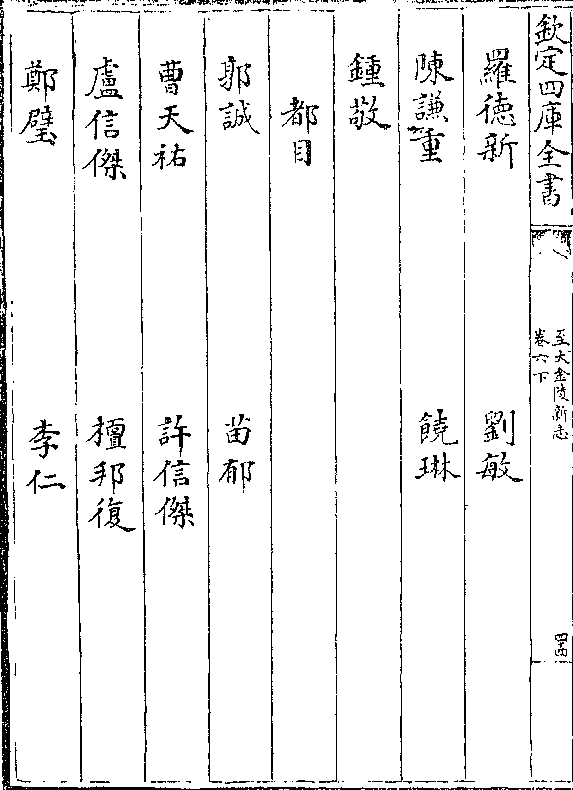 欽定四庫全書
至大金陵新志
卷六下
四十四
羅德新 劉敏
陳謙重 饒琳
鍾敬
都目
郭誠 苗郁
曹天祐 許信傑
盧信傑 檀邦復
鄭璧 李仁